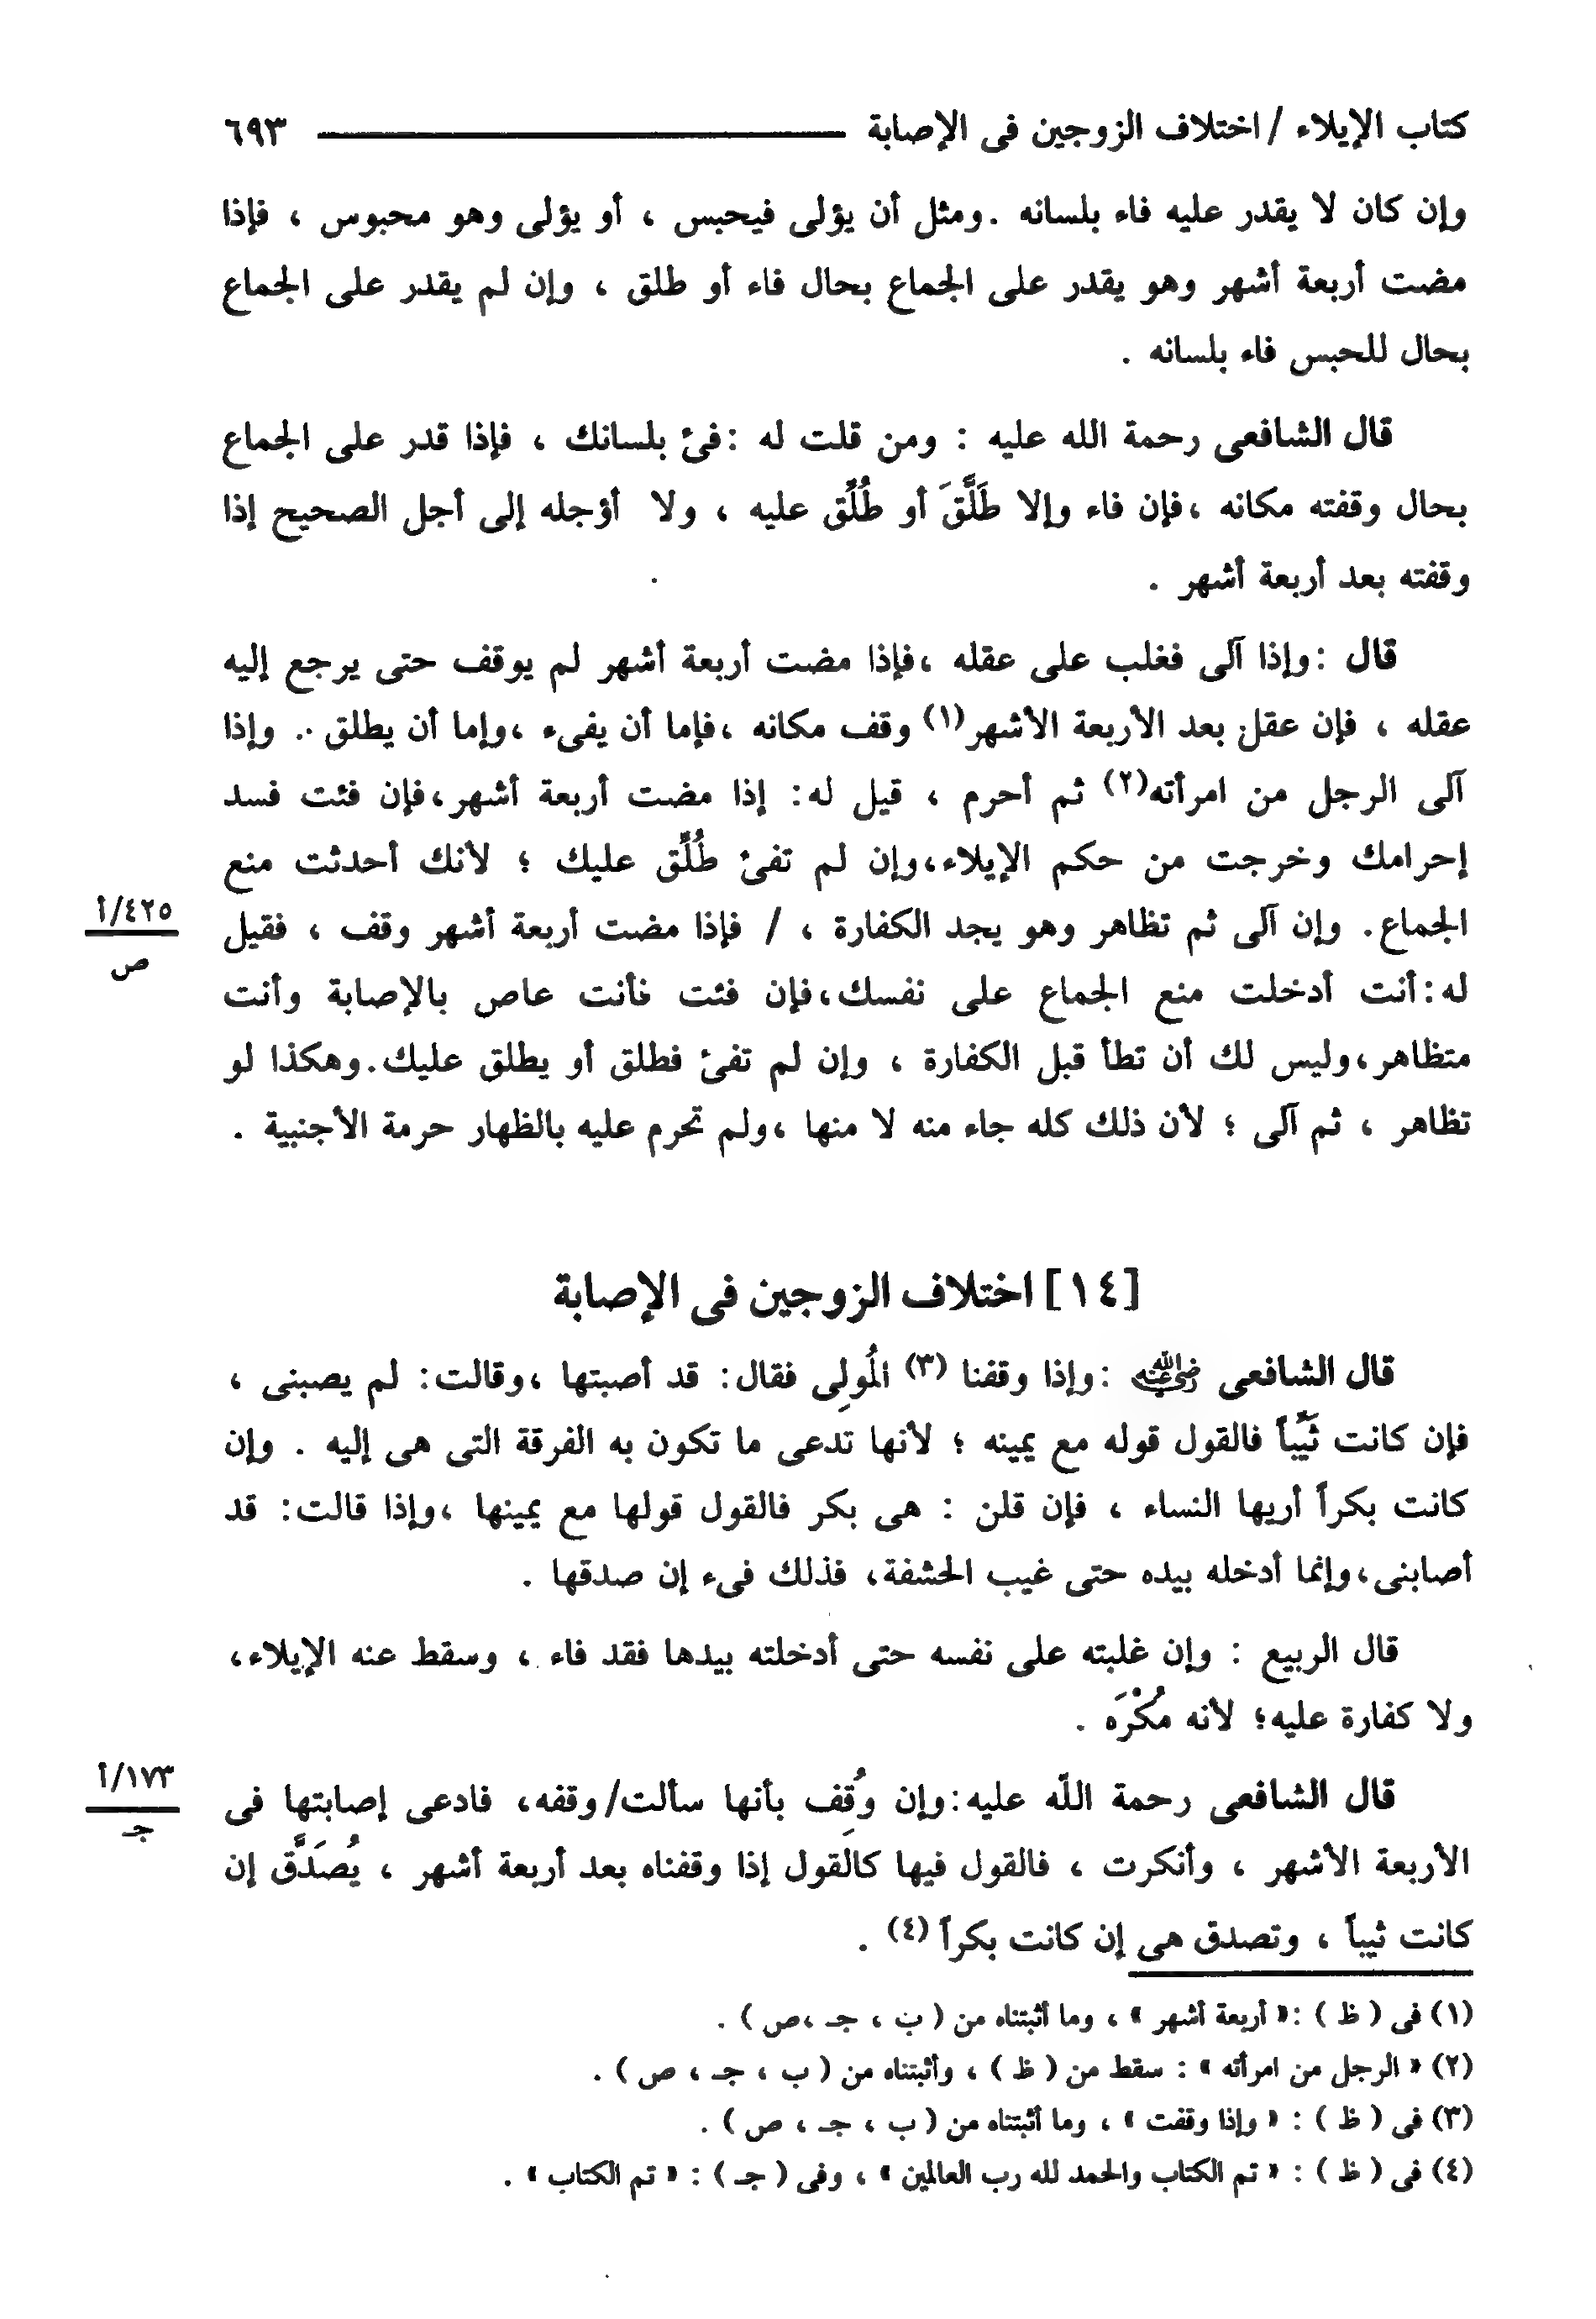 كتاب الإيلاء / اختلاف الزوجين فى الإصابة ٦٩٣
وإن كان لا يقدر عليه فاء بلسانه . ومثل أن يؤلى فيحبس ، أو يؤلى وهو محبوس ، فإذا
مضت أربعة أشهر وهو يقدر على الجماع بحال فاء أو طلق ، وإن لم يقدر على الجماع
بحال للحبس فاء بلسانه .
قال الشافعى رحمة الله عليه : ومن قلت له : فئ بلسانك ، فإذا قدر على الجماع
بحال وقفته مكانه ، فإن فاء وإلا طَلَّقَ أو طُلِّق عليه ، ولا أؤجله إلى أجل الصحيح إذا
وقفته بعد أربعة أشهر .
قال : وإذا آلى فغلب على عقله ، فإذا مضت أربعة أشهر لم يوقف حتى يرجع إليه
عقله ، فإن عقل بعد الأربعة الأشهر (١) وقف مكانه ، فإما أن يفىء ، وإما أن يطلق . وإذا
آلى الرجل من امرأته (٢) ثم أحرم ، قيل له : إذا مضت أربعة أشهر ، فإن فئت فسد
إحرامك وخرجت من حكم الإيلاء ، وإن لم تفئ طُلِّق عليك ؛ لأنك أحدثت منع
الجماع . وإن آلى ثم تظاهر وهو يجد الكفارة ، / فإذا مضت أربعة أشهر وقف ، فقيل
٤٢٥/أ
ص
له : أنت أدخلت منع الجماع على نفسك ، فإن فئت فأنت عاص بالإصابة وأنت
متظاهر ، وليس لك أن تطأ قبل الكفارة ، وإن لم تفئ فطلق أو يطلق عليك . وهكذا لو
تظاهر ، ثم آلى ؛ لأن ذلك كله جاء منه لا منها ، ولم تحرم عليه بالظهار حرمة الأجنبية .
[١٤] اختلاف الزوجين فى الإصابة
قال الشافعى رضي الله عنه : وإذا وقفنا (٣) المُولِى فقال : قد أصبتها ، وقالت : لم يصبنى ،
فإن كانت ثَيِّباً فالقول قوله مع يمينه ؛ لأنها تدعى ما تكون به الفرقة التى هى إليه . وإن
كانت بكراً أريها النساء ، فإن قلن : هى بكر فالقول قولها مع يمينها ، وإذا قالت : قد
أصابنى ، وإنما أدخله بيده حتى غيب الحشفة ، فذلك فىء إن صدقها .
قال الربيع : وإن غلبته على نفسه حتى أدخلته بيدها فقد فاء ، وسقط عنه الإيلاء ،
ولا كفارة عليه ؛ لأنه مُكْرَه .
قال الشافعى رحمة الله عليه : وإن وُقِف بأنها سألت / وقفه ، فادعى إصابتها فى
١٧٣/أ
جـ
الأربعة الأشهر ، وأنكرت ، فالقول فيها كالقول إذا وقفناه بعد أربعة أشهر ، يُصَدَّق إن
كانت ثيباً ، وتصدق هى إن كانت بكراً (٤) .
(١) فى ( ظ ) : « أربعة أشهر » ، وما أثبتناه من ( ب ، جـ ، ص ) .
(٢) « الرجل من امرأته » : سقط من ( ظ ) ، وأثبتناه من ( ب ، جـ ، ص ) .
(٣) فى ( ظ ) : « وإذا وقفت » ، وما أثبتناه من ( ب ، جـ ، ص ) .
(٤) فى ( ظ ) : « تم الكتاب والحمد لله رب العالمين » ، وفى ( جـ ) : « تم الكتاب » .